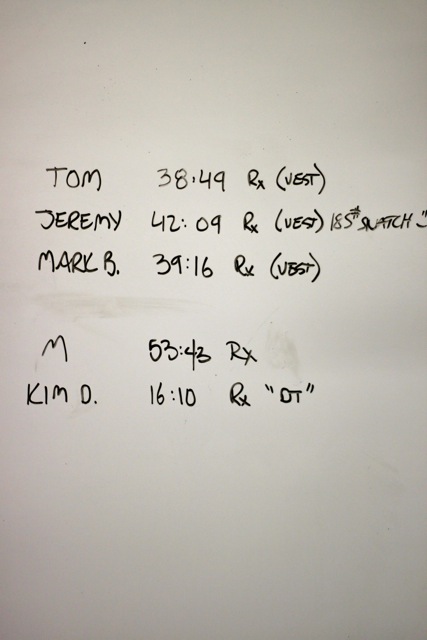 TOM 38:49 Rx (VEST)
JEREMY 42:09 Rx (VEST) 185# SNATCH
MARK B. 39:16 Rx (VEST)
M 53:43 Rx
KIM D. 16:10 Rx "DT"